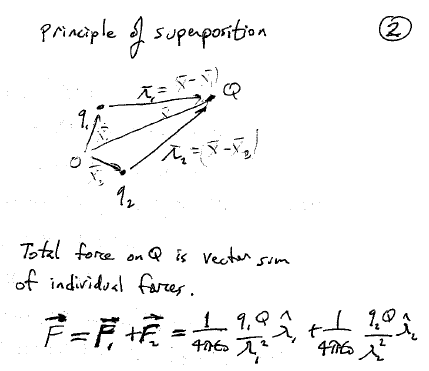 Principle of superposition
②
r̄₁ = (r̄ - r̄₁)
Q
q₁
r̄₁
r̄
O
r̄₂
r̄₂ = (r̄ - r̄₂)
q₂
Total force on Q is vector sum
of individual forces.
F⃗ = F⃗₁ + F⃗₂ = 1/4πϵ₀ q₁Q/r₁² r̂₁ + 1/4πϵ₀ q₂Q/r₂² r̂₂